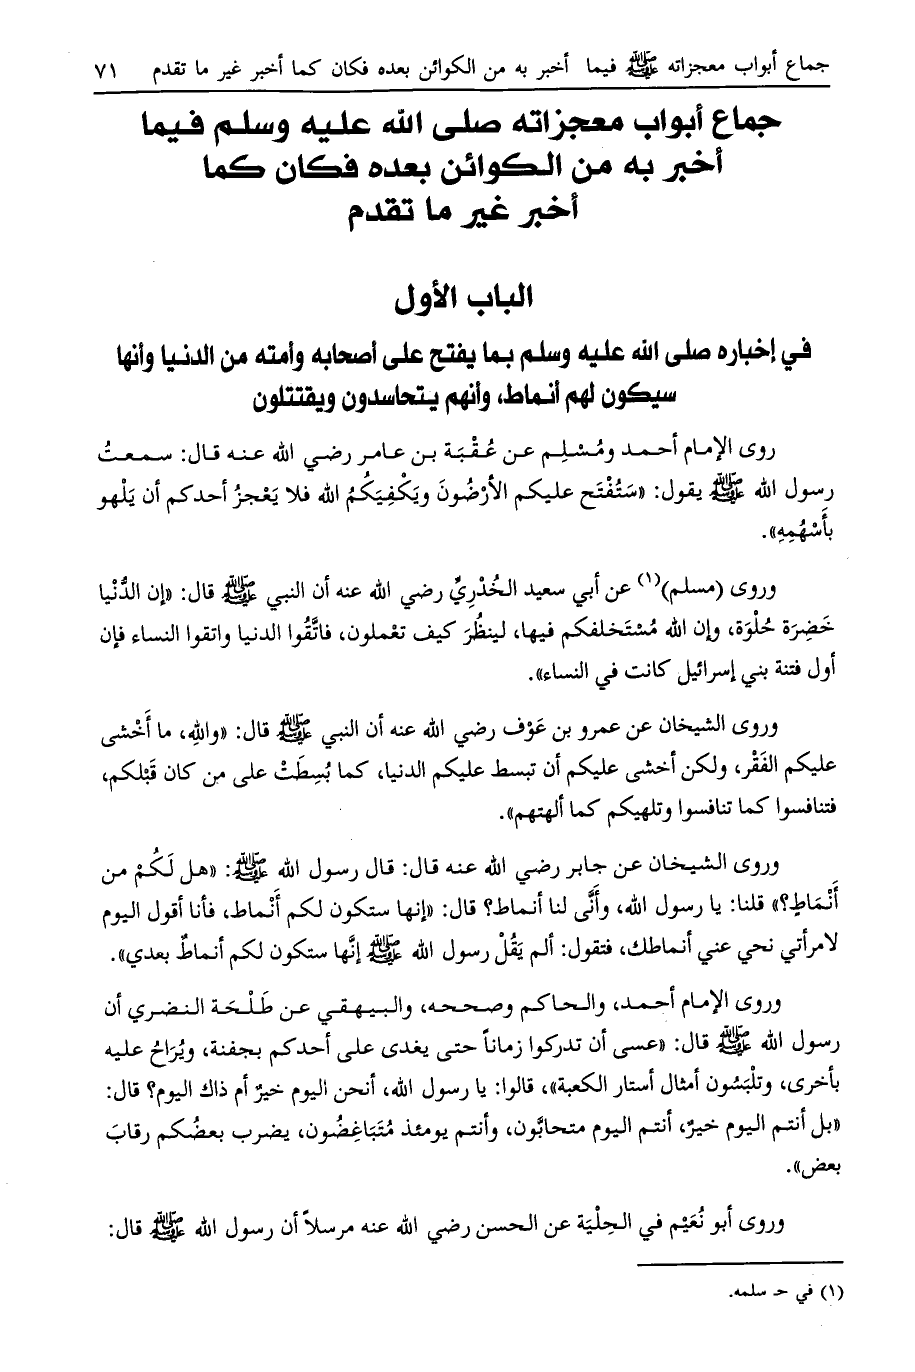 جماع أبواب معجزاته ﷺ فيما أخبر به من الكوائن بعده فكان كما أخبر غير ما تقدم ٧١
جماع أبواب معجزاته صلى الله عليه وسلم فيما
أخبر به من الكوائن بعده فكان كما
أخبر غير ما تقدم
الباب الأول
في إخباره صلى الله عليه وسلم بما يفتح على أصحابه وأمته من الدنيا وأنها
سيكون لهم أنماط، وأنهم يتحاسدون ويقتتلون
روى الإمام أحمد ومُسْلِم عن عُقْبَة بن عامر رضي الله عنه قال: سمعتُ
رسول الله ﷺ يقول: «سَتُفْتَح عليكم الأرْضُونَ ويَكْفِيَكُمُ الله فلا يَعْجزُ أحدكم أن يَلْهو
بأَسْهُمِهِ».
وروى (مسلم)(١) عن أبي سعيد الخُدْرِيِّ رضي الله عنه أن النبي ﷺ قال: «إن الدُّنْيا
خَضِرَة حُلْوَة، وإن الله مُسْتَخلفكم فيها، لينظُرَ كيف تعْملون، فاتَّقُوا الدنيا واتقوا النساء فإن
أول فتنة بني إسرائيل كانت في النساء».
وروى الشيخان عن عمرو بن عَوْف رضي الله عنه أن النبي ﷺ قال: «والله، ما أَخْشى
عليكم الفَقْر، ولكن أخشى عليكم أن تبسط عليكم الدنيا، كما بُسِطَتْ على من كان قَبْلكم،
فتنافسوا كما تنافسوا وتلهيكم كما ألهتهم».
وروى الشيخان عن جابر رضي الله عنه قال: قال رسول الله ﷺ: «هل لَكُمْ من
أَنْمَاطٍ؟» قلنا: يا رسول الله، وأَنَّى لنا أنماط؟ قال: «إنها ستكون لكم أَنْماط، فأنا أقول اليوم
لامرأتي نحي عني أنماطك، فتقول: ألم يَقُلْ رسول الله ﷺ إنَّها ستكون لكم أنماطٌ بعدي».
وروى الإمام أحمد، والحاكم وصححه، والبيهقي عن طَلْحَة النضري أن
رسول الله ﷺ قال: «عسى أن تدركوا زماناً حتى يغدى على أحدكم بجفنة، ويُرَاحُ عليه
بأخرى، وتلْبَسُون أمثال أستار الكعبة»، قالوا: يا رسول الله، أنحن اليوم خيرٌ أم ذاك اليوم؟ قال:
«بل أنتم اليوم خيرٌ، أنتم اليوم متحابَّون، وأنتم يومئذ مُتَبَاغِضُون، يضرب بعضُكم رقابَ
بعض».
وروى أبو نُعَيْم في الحِلْيَة عن الحسن رضي الله عنه مرسلاً أن رسول الله ﷺ قال:
(١) في حـ سلمه.